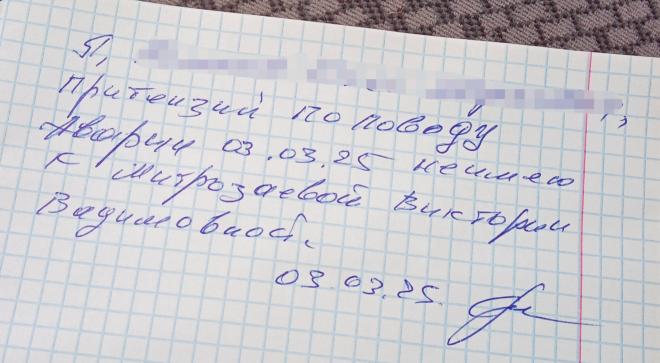 Я,
Притензий по поводу
Аварии 03.03.25 неимею
к Митрозаевой Виктории
Вадимовной.
03.03.25